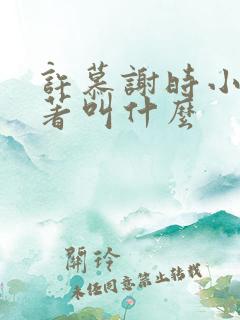 許慕謝時小
著叫什麼
關玲
未經同意禁止轉載